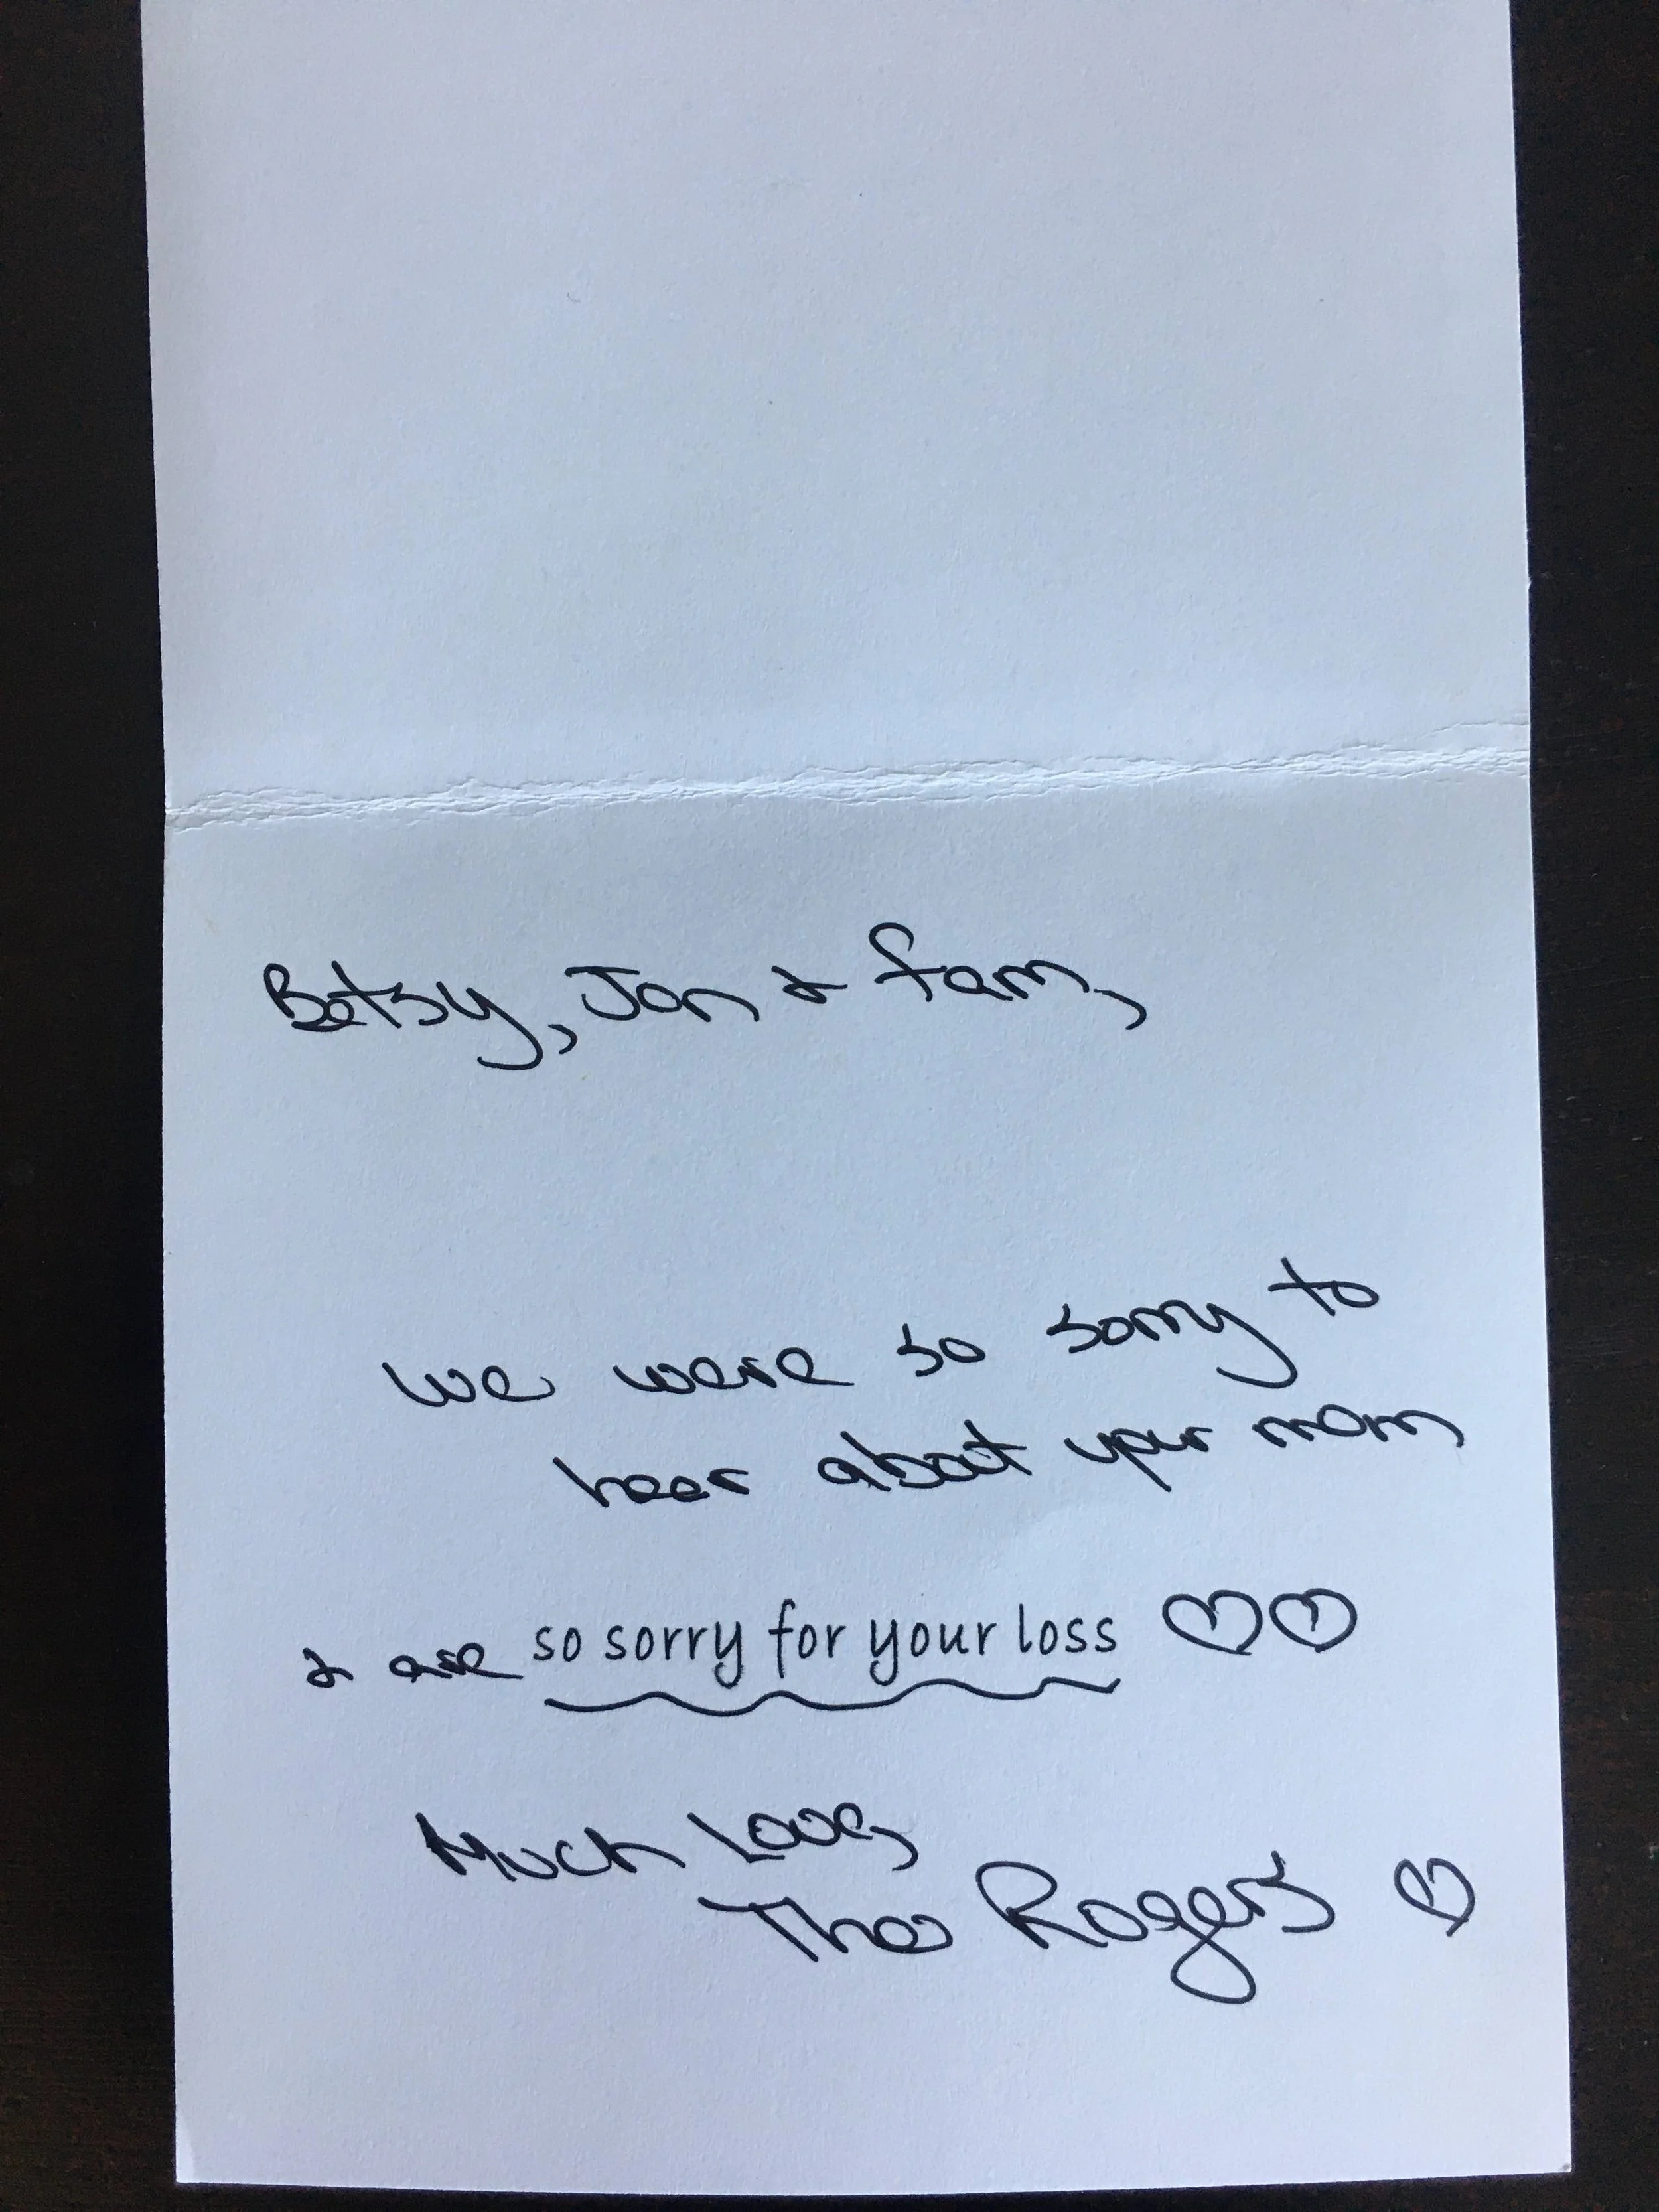 Betsy, Jon & fam,
We were so sorry to
hear about your mom
& are so sorry for your loss ♡♡
Much Love,
The Rogers ♡